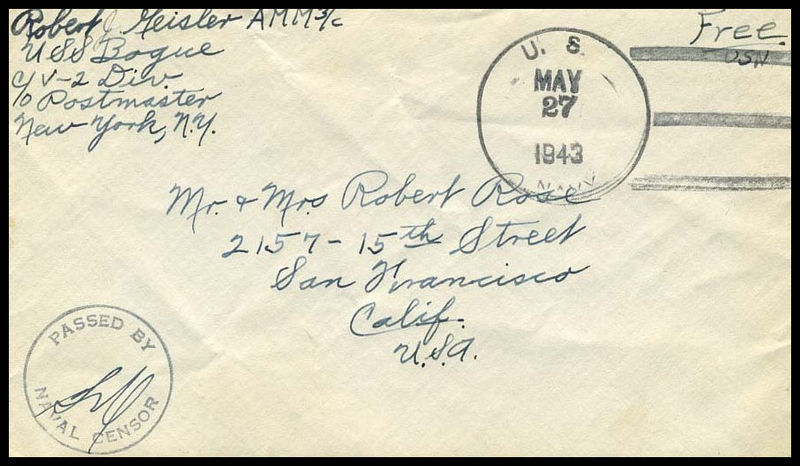 Robert J. Geisler AMM3/c
USS Bogue
V-2 Div.
c/o Postmaster
New York, N.Y.
Free.
USN
U. S.
MAY
27
1943
NAVY
Mr. & Mrs Robert Rose
2157 - 15th Street
San Francisco
Calif.
U.S.A.
PASSED BY
NAVAL CENSOR